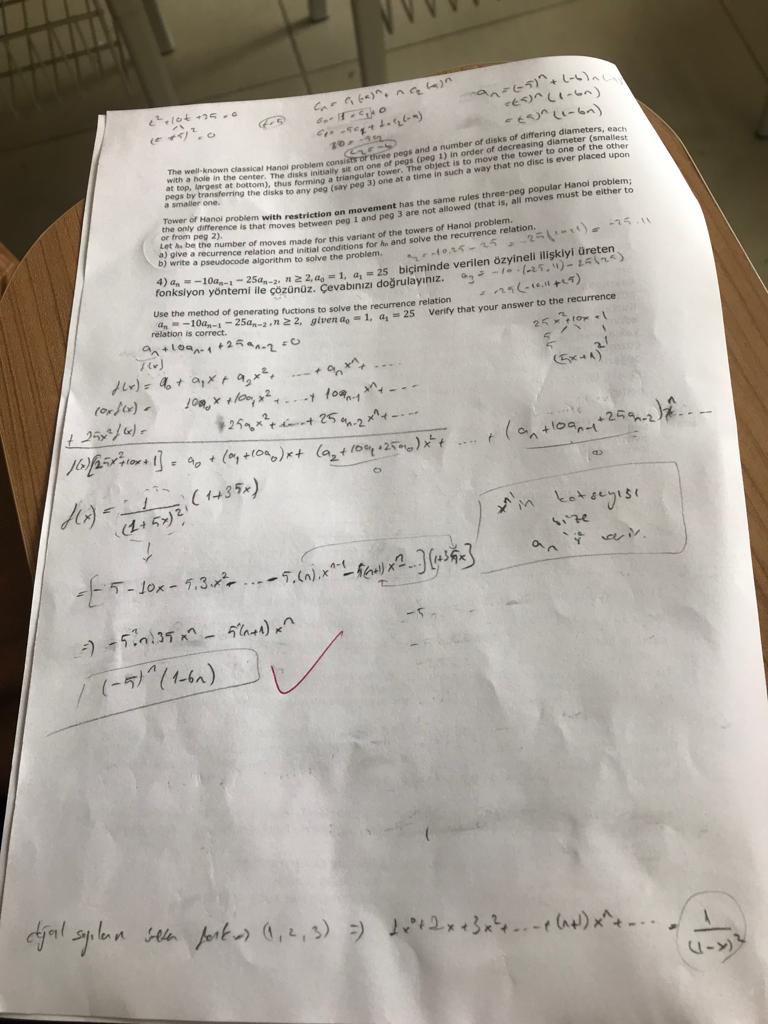 t²+10t+25=0
(t+5)²=0
t=-5
cₙ = c₁(-5)ⁿ + n c₂(-5)ⁿ
aₙ=(-5)ⁿ+(-6)n(-5)ⁿ
=(-5)ⁿ(1-6n)
=(-5)ⁿ(1-6n)
The well-known classical Hanoi problem consists of three pegs and a number of disks of differing diameters, each
with a hole in the center. The disks initially sit on one of pegs (peg 1) in order of decreasing diameter (smallest
at top, largest at bottom), thus forming a triangular tower. The object is to move the tower to one of the other
pegs by transferring the disks to any peg (say peg 3) one at a time in such a way that no disc is ever placed upon
a smaller one.
Tower of Hanoi problem with restriction on movement has the same rules three-peg popular Hanoi problem;
the only difference is that moves between peg 1 and peg 3 are not allowed (that is, all moves must be either to
or from peg 2).
Let hₙ be the number of moves made for this variant of the towers of Hanoi problem.
a) give a recurrence relation and initial conditions for hₙ and solve the recurrence relation.
b) write a pseudocode algorithm to solve the problem.
a₂=-10.25-25 = -25(10+1) = -25.11
4) aₙ = −10aₙ₋₁ − 25aₙ₋₂, n ≥ 2, a₀ = 1, a₁ = 25 biçiminde verilen özyineli ilişkiyi üreten
fonksiyon yöntemi ile çözünüz. Çevabınızı doğrulayınız.
a₃ = -10.(-25.11)-25(25)
= -25(-10.11+25)
Use the method of generating fuctions to solve the recurrence relation
aₙ = −10aₙ₋₁ − 25aₙ₋₂, n ≥ 2, given a₀ = 1, a₁ = 25 Verify that your answer to the recurrence
relation is correct.
25x²+10x+1
5 1
5 1
(5x+1)²
aₙ+10aₙ₋₁+25aₙ₋₂=0
f(x)
f(x) = a₀ + a₁x + a₂x² + .... + aₙxⁿ + ....
10xf(x) = 10a₀x + 10a₁x² + ... + 10aₙ₋₁xⁿ + ...
+ 25x²f(x) = +25a₀x² + ... + 25aₙ₋₂xⁿ + ....
f(x)[25x²+10x+1] = a₀ + (a₁+10a₀)x + (a₂+10a₁+25a₀)x² + .... + (aₙ+10aₙ₋₁+25aₙ₋₂)xⁿ....
0 0
f(x) = 1/(1+5x)² (1+35x)
xⁿ in katsayısı
bize
aₙ i verir.
=[-5-10x-5.3.x²- ... -5.(n).xⁿ⁻¹-5(n+1)xⁿ-...](1+35x)
-5
=> -5ⁿ.n.35xⁿ - 5(n+1)xⁿ
(-5)ⁿ(1-6n)
(1, 2, 3) => 1x⁰+2x+3x²+...+(n+1)xⁿ+.... = 1/(1-x)²